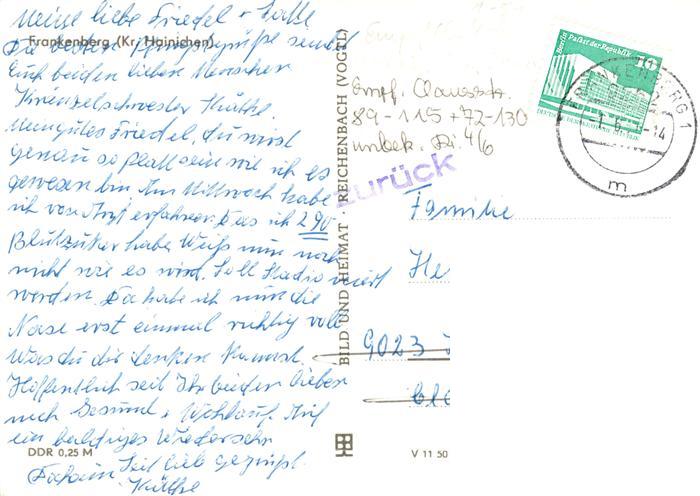 Meine liebe Friedel + Lotte
Frankenberg (Kr. Hainichen)
Die besten Pfingstgrüße sendet
Euch beiden lieben Menschen
Kränzelschwester Käthe.
Mein gutes Friedel, du wirst
genau so platt sein wie ich es
gewesen bin. Am Mittwoch habe
ich von Arzt erfahren das ich 290
Blutzucker habe. Weiß nun noch
nicht wie es wird. Soll stationiert
werden. Da habe ich nun die
Nase erst einmal richtig voll
Was du dir denken kannst.
Hoffentlich seit Ihr beiden lieben
noch Gesund + Wohlauf. Auf
ein baldiges Wiedersehn
DDR 0,25 M
Seit lieb gegrüßt
Käthe
BILD UND HEIMAT · REICHENBACH (VOGTL)
V 11 50
Empf. Clausstr.
89-115+72-130
unbek. 4/6
zurück
Familie
He
9023
Berlin Palast der Republik
10
DEUTSCHE DEMOKRATISCHE REPUBLIK
FRANKENBERG 1
-14
m